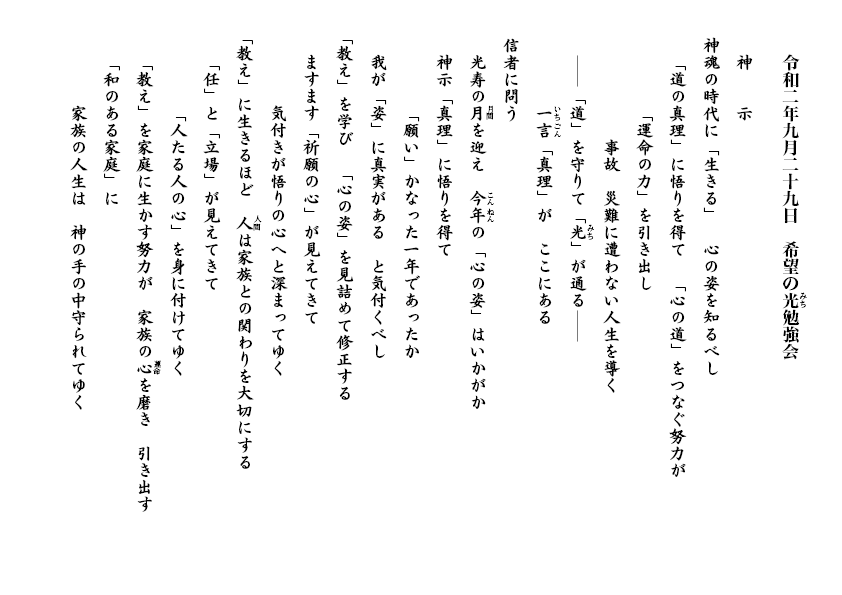 令和二年九月二十九日　希望の光勉強会
みち
神　示
神魂の時代に「生きる」　心の姿を知るべし
「道の真理」に悟りを得て　「心の道」をつなぐ努力が
「運命の力」を引き出し
事故　災難に遭わない人生を導く
――「道」を守りて「光」が通る――
みち
一言「真理」が　ここにある
いちごん
信者に問う
光寿の月を迎え　今年の「心の姿」はいかがか
月間
こんねん
神示「真理」に悟りを得て
「願い」かなった一年であったか
我が「姿」に真実がある　と気付くべし
「教え」を学び　「心の姿」を見詰めて修正する
ますます「祈願の心」が見えてきて
気付きが悟りの心へと深まってゆく
「教え」に生きるほど　人は家族との関わりを大切にする
人間
「任」と「立場」が見えてきて
「人たる人の心」を身に付けてゆく
「教え」を家庭に生かす努力が　家族の心を磨き　引き出す
運命
「和のある家庭」に
家族の人生は　神の手の中守られてゆく